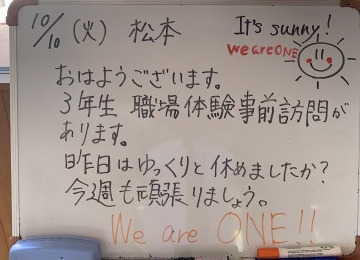 10/10 (火) 松本
It's sunny!
we are ONE
おはようございます。
3年生 職場体験事前訪問が
あります。
昨日はゆっくりと休めましたか?
今週も頑張りましょう。
We are ONE!!